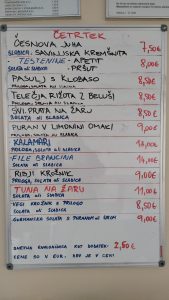 ČETRTEK
ČESNOVA JUHA
SLADICA, SAVINJSKA KREMŠNITA 7,50€
TESTENINE - APETIT 8,00€
SOLATA ali SLADICA - PRŠUT
PASULJ S KLOBASO 8,50€
PRILOGA, SOLATA ali SLADICA
TELEČJA RIŽOTA Z BELUŠI 8,50€
SOLATA ali SLADICA
SVI. PRŠA NA ŽARU 8,50€
SOLATA ali SLADICA
PURAN V LIMONINI OMAKI 9,00€
PRILOGA, SOLATA ali SLADICA
KALAMARI 13,00€
PRILOGA, SOLATA ali SLADICA
FILE BRANCINA 14,00€
SOLATA ali SLADICA
RIBJI KROŽNIK 9,00€
PRILOGA, SOLATA ali SLADICA
TUNA NA ŽARU 11,00€
SOLATA ali SLADICA
VEGI KROŽNIK S PRILOGO 8,50€
SOLATA ali SLADICA
GURMANSKA SOLATA S PURANOM 9,00€
DNEVNA KOMBINACIJA KOT DODATEK: 2,50€
CENE SO V EUR, DDV JE V CENI